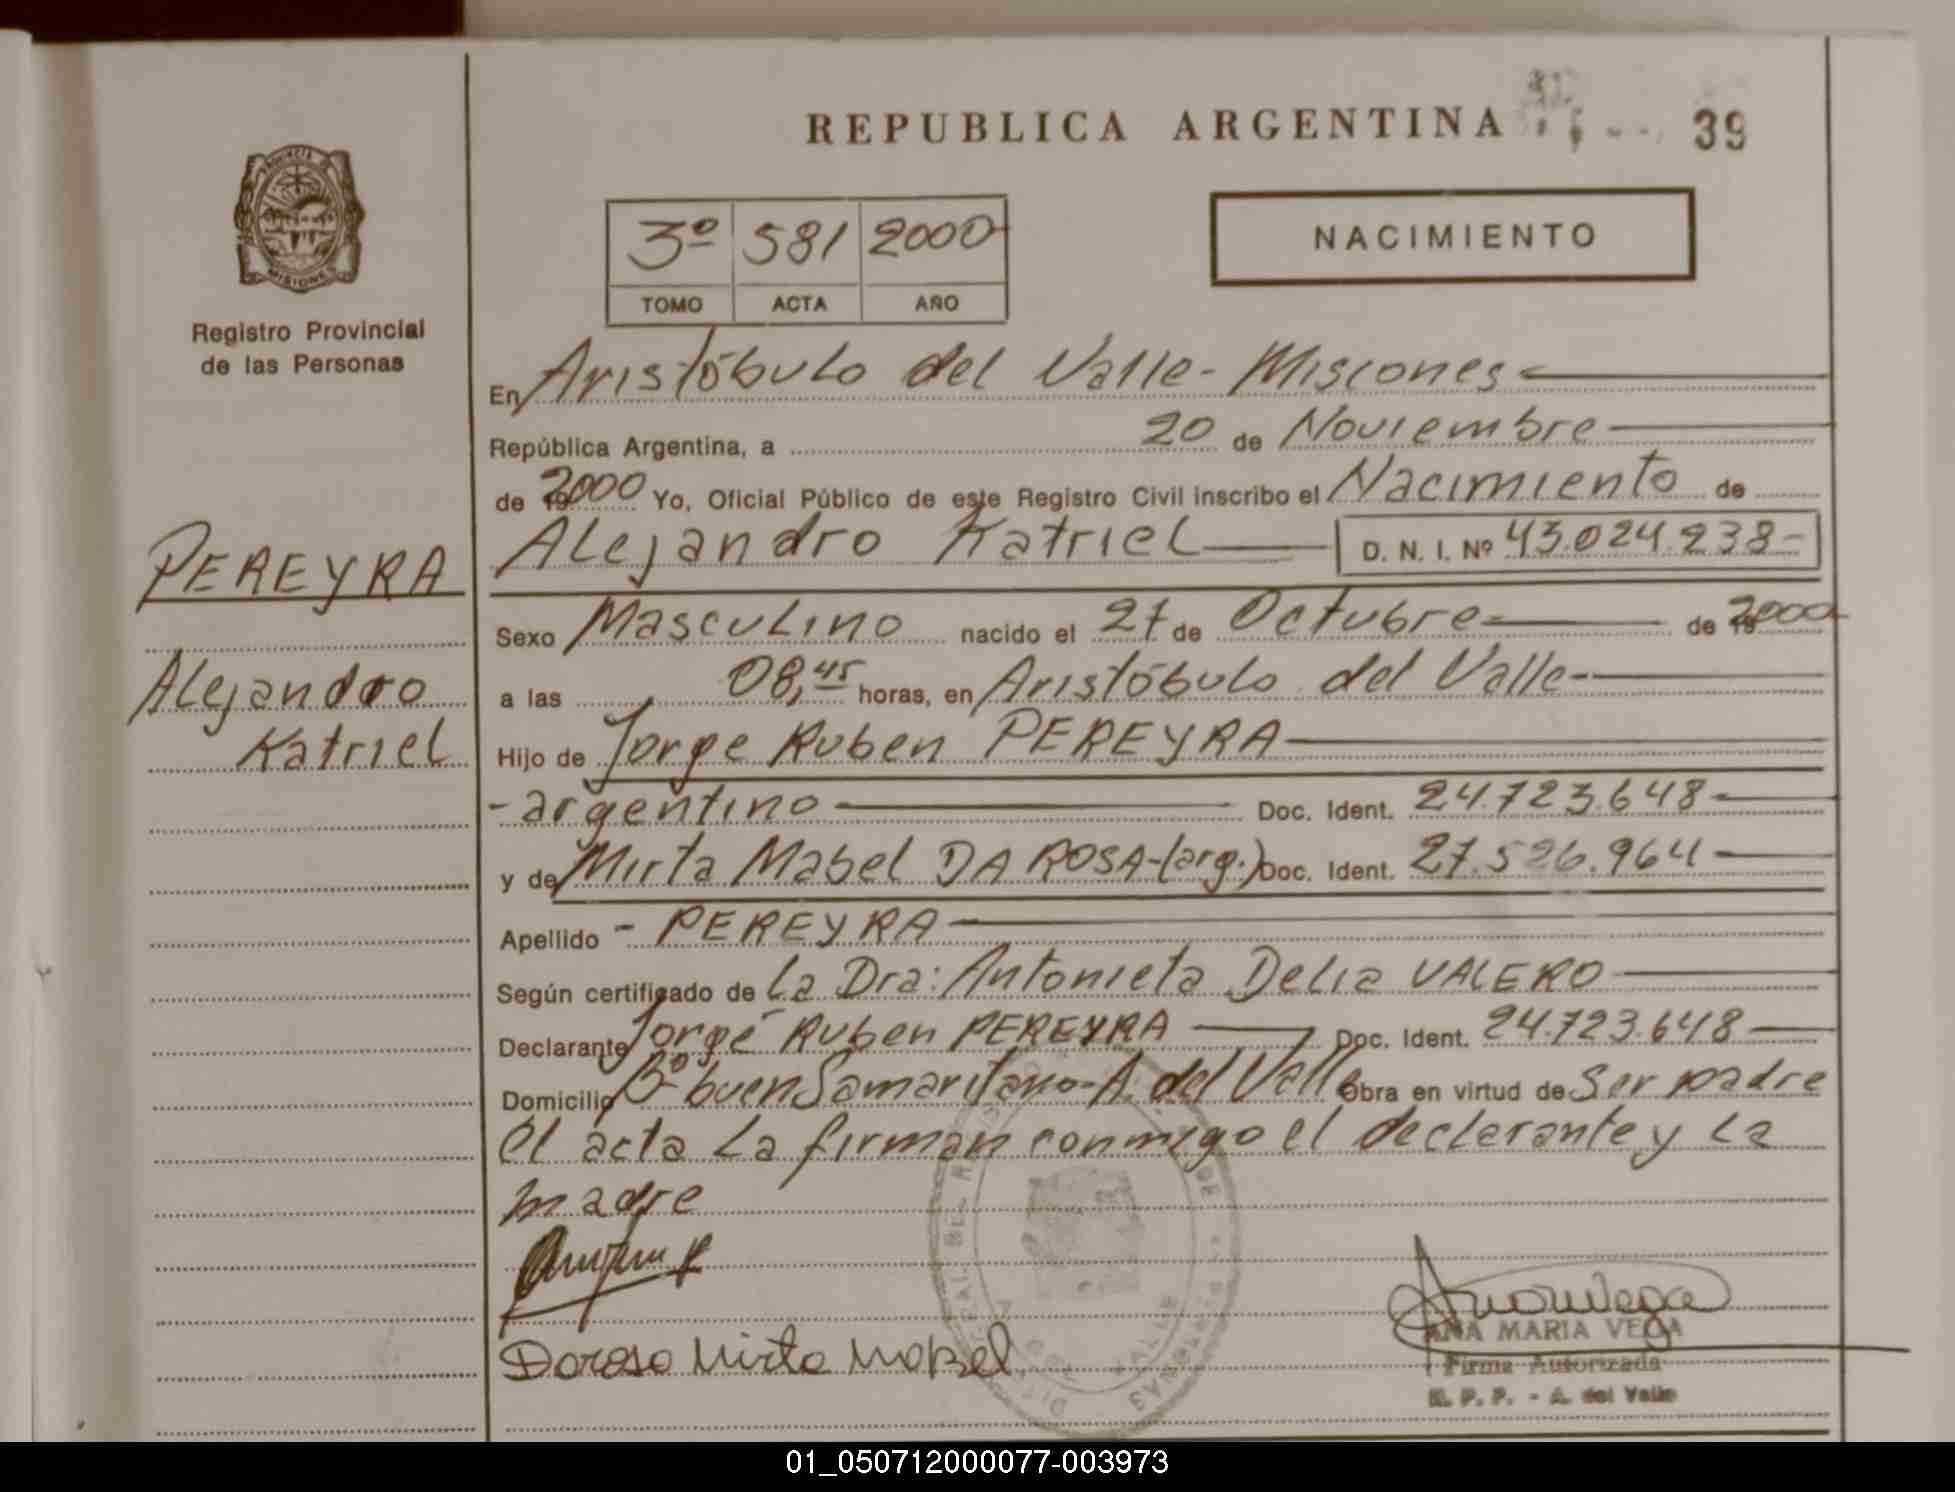 REPUBLICA ARGENTINA
39
PROVINCIA DE
MISIONES
Registro Provincial
de las Personas
3º 581 2000
TOMO ACTA AÑO
NACIMIENTO
En Aristóbulo del Valle - Misiones
República Argentina, a 20 de Noviembre
de 2000 Yo, Oficial Público de este Registro Civil inscribo el Nacimiento de
Alejandro Katriel D. N. I. Nº 43.024.238-
PEREYRA
Alejandro
Katriel
Sexo Masculino nacido el 27 de Octubre de 2000
a las 08,45 horas, en Aristóbulo del Valle-
Hijo de Jorge Ruben PEREYRA
- argentino Doc. Ident. 24.723.648-
y de Mirta Mabel DA ROSA-(arg.) Doc. Ident. 27.526.964-
Apellido - PEREYRA
Según certificado de La Dra: Antonieta Delia VALERO
Declarante Jorge Ruben PEREYRA Doc. Ident. 24.723.648-
Domicilio Bº buen Samaritano - A. del Valle Obra en virtud de Ser padre
el acta La firman conmigo el declarante y La
madre
Darosa Mirta Mabel
ANA MARIA VEGA
Firma Autorizada
R. P. P. - A. del Valle
01_050712000077-003973